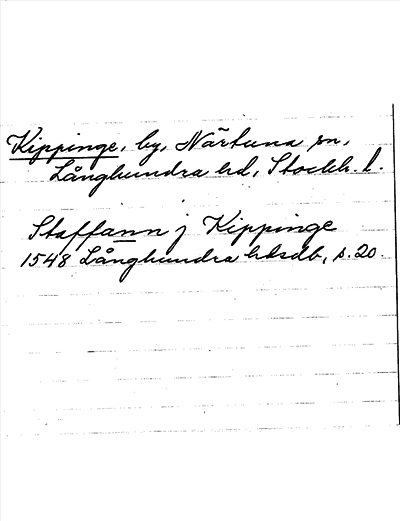 Kippinge, by, Närtuna sn,
Långhundra hd, Stockh. l.
Staffann j Kippinge
1548 Långhundra hdsdb, s. 20.